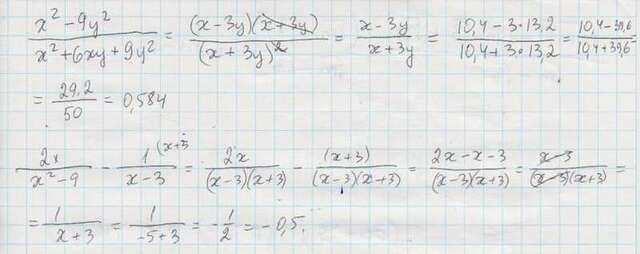 (x² - 9y²)/(x² + 6xy + 9y²) = ((x - 3y)(x + 3y))/((x + 3y)²) = (x - 3y)/(x + 3y) = (10,4 - 3·13,2)/(10,4 + 3·13,2) = (10,4 - 39,6)/(10,4 + 39,6) =
= 29,2/50 = 0,584
2x/(x² - 9) - 1/(x - 3) (x+3 = 2x/((x - 3)(x + 3)) - (x + 3)/((x - 3)(x + 3)) = (2x - x - 3)/((x - 3)(x + 3)) = (x - 3)/((x - 3)(x + 3)) =
= 1/(x + 3) = 1/(-5 + 3) = -1/2 = -0,5.